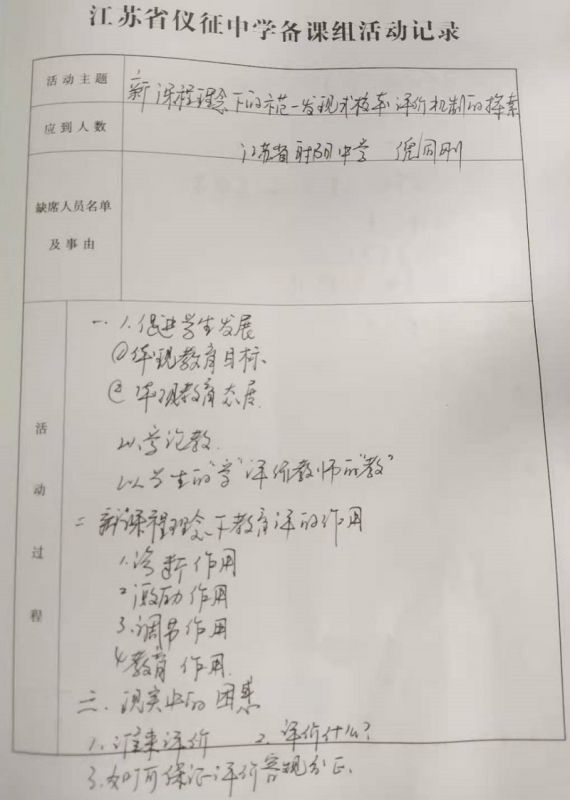 江苏省仪征中学备课组活动记录
活动主题
新课程理念下的示范-发现式校本评价机制的探索
应到人数
江苏省射阳中学 倪同刚
缺席人员名单
及事由
活动过程
一、1.促进学生发展
①体现教育目标
②体现教育态度
2以学论教
以学生的"学"评价教师的"教"
二 新课程理念下教育评的作用
1.诊断作用
2激励作用
3.调节作用
4教育作用
三、现实中的困惑
1.谁来评价 2.评价什么?
3.如何保证评价客观公正.